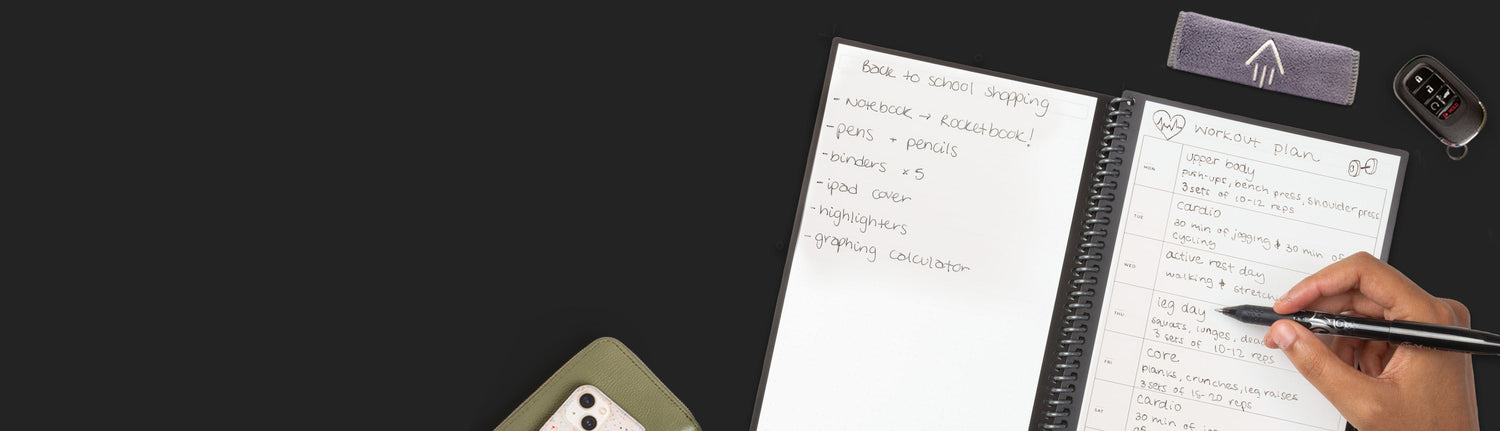 Back to school shopping
- Notebook → Rocketbook!
- pens + pencils
- binders x 5
- ipad cover
- highlighters
- graphing calculator
workout plan
MON
upper body
push-ups, bench press, shoulder press
3 sets of 10-12 reps
TUE
cardio
30 min of jogging & 30 min of
cycling
WED
active rest day
walking & stretch
THU
leg day
squats, lunges, dead
3 sets of 10-12 reps
FRI
core
planks, crunches, leg raises
3 sets of 15-20 reps
SAT
cardio
30 min of
of